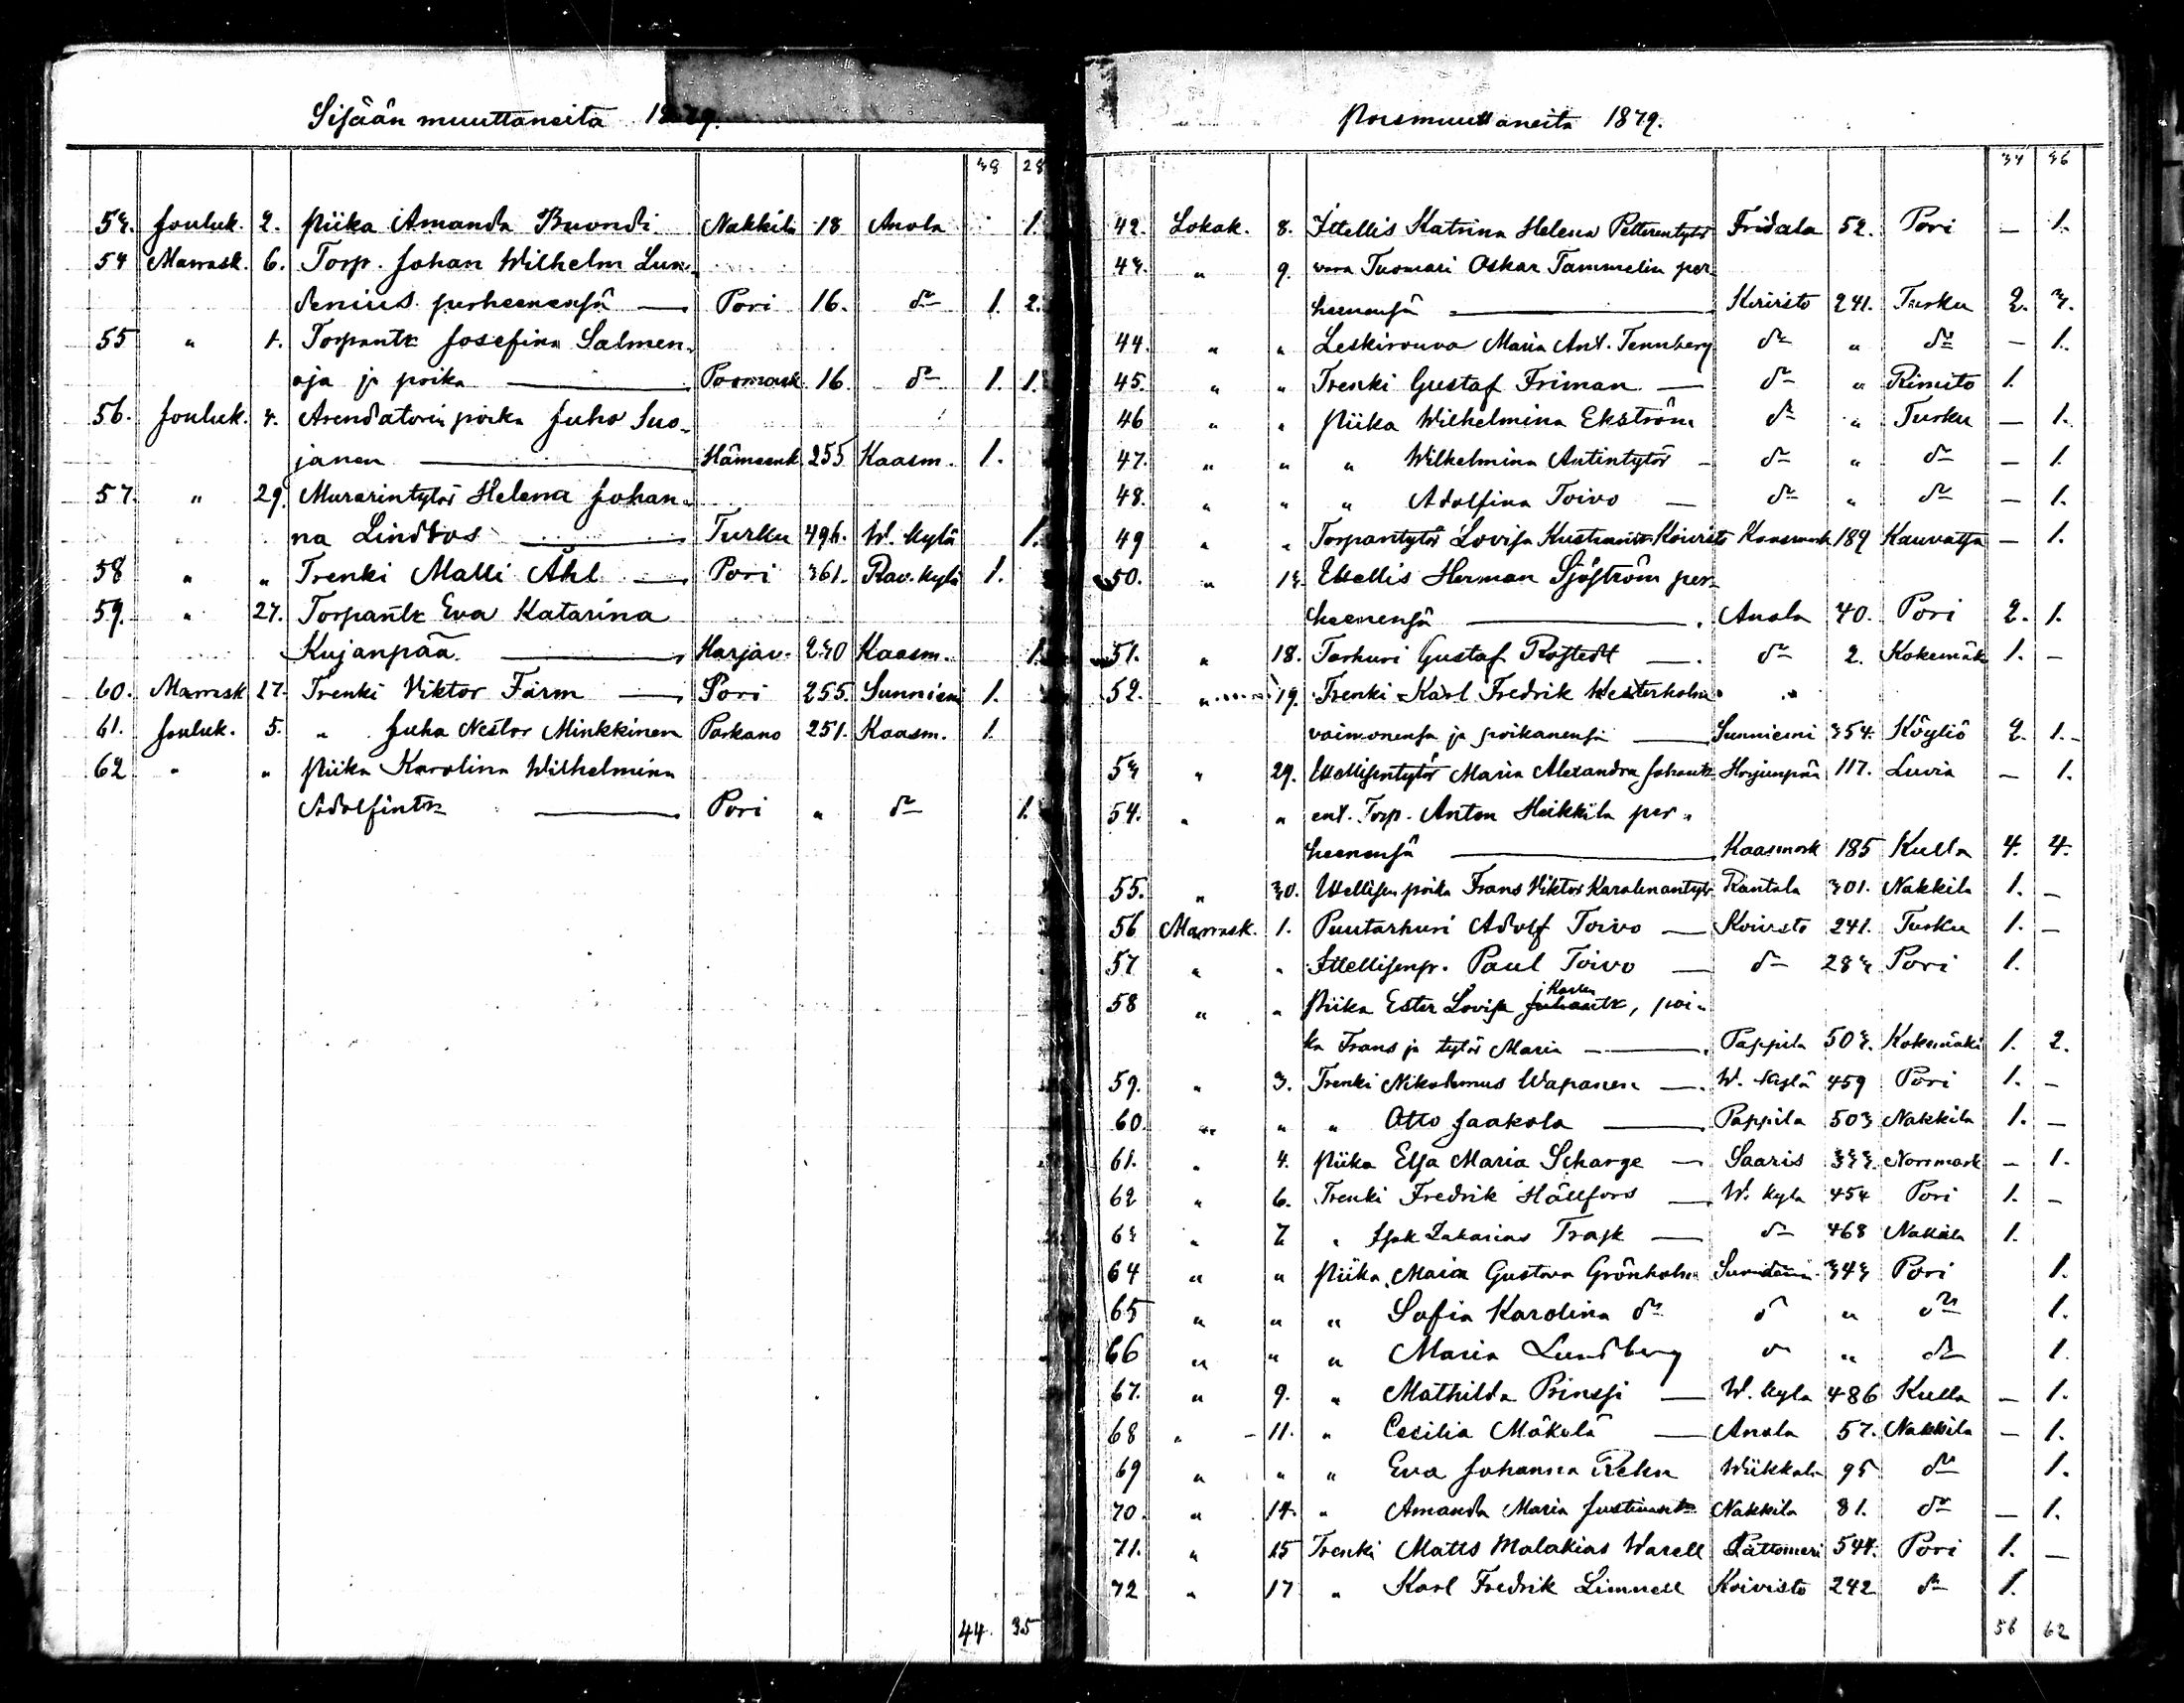 Sisään muuttaneita 1879.
38 28
53. Jouluk. 2. Piika Amanda Buondi Nakkila 18 Anola 1.
54 Marrask. 6. Torp. Johan Wilhelm Lun-
denius perheenensä — Pori 16. do 1. 2.
55 " 1. Torpantr Josefina Salmen-
oja ja poika — Pormark 16. do 1. 1.
56. Jouluk. 3. Arendatorin poika Juho Suo-
janen — Hämeenk 255 Kaasm. 1.
57. " 29. Murarintytör Helena Johan-
na Lindroos — Turku 496. W. kylä 1.
58 " " Trenki Malli Åhl — Pori 361. Rav.kylä 1.
59. " 27. Torpantr Eva Katarina
Kujanpää — Harjav. 230 Kaasm. 1.
60. Marrask 27. Trenki Viktor Färm — Pori 255. Sunniem 1.
61. Jouluk. 5. " Juha Nestor Minkkinen Parkano 251. Kaasm. 1.
62 " " Piika Karolina Wilhelmina
Adolfintr — Pori " do 1.
44. 35
Poismuuttaneita 1879.
34 36
42. Lokak. 8. Ittellis Katrina Helena Petterintytör Fridala 52. Pori — 1.
43. " 9. Tuomari Oskar Tammelin per-
heenensä — Koivisto 241. Turku 2. 3.
44. " " Leskirouva Maria Ant. Tennberg do " do — 1.
45. " " Trenki Gustaf Friman — do " Rimito 1.
46 " " Piika Wilhelmina Ekström do " Turku — 1.
47. " " " Wilhelmina Antintytör — do " do — 1.
48. " " " Adolfina Toivo — do " do — 1.
49 " " Torpantytör Lovisa Koivisto Kaasmark 189 Kauvatsa — 1.
50. " 13. Ittellis Herman Sjöström per-
heenensä — Anola 40. Pori 2. 1.
51. " 18. Torkuri Gustaf Rostedt — do 2. Kokemäk 1. —
52. " 19. Trenki Karl Fredrik Westerholm
vaimonensa ja poikanensa — Sunniemi 354. Köyliö 2. 1.
53 " 29. Ittellisentytör Maria Alexandra Johantr Harjunpää 117. Luvia — 1.
54. " " ent. Torp. Anton Heikkila per-
heenensä — Kaasmark 185 Kulla 4. 4.
55. " 30. Ittellisen poika Frans Viktor Karolinantytr Rantala 301. Nakkila 1. —
56 Marrask. 1. Puutarhuri Adolf Toivo — Koivisto 241. Turku 1. —
57 " " Ittellisenp. Paul Toivo — do 283 Pori 1.
58 " " Piika Ester Lovisa Juhantr, poi-
ka Frans ja tytör Maria — Pappila 503. Kokemäki 1. 2.
59. " 3. Trenki Nikodemus Wapanen — W. kylä 459 Pori 1. —
60. " " " Otto Jaakola — Pappila 503 Nakkila 1. —
61. " 4. Piika Elsa Maria Scharge — Saaris 333. Norrmark — 1.
62 " 6. Trenki Fredrik Hällfors — W. kyla 454 Pori 1. —
63 " 7 " Isak Zakarias Trask — do 468 Nakkila 1.
64 " " Piika Maria Gustava Grönholm 343 Pori 1.
65 " " " Sofia Karolina do do " do 1.
66 " " " Maria Lundberg do " do 1.
67. " 9. " Mathilda Prinssi — W. kyla 486 Kulla — 1.
68 " 11. " Cecilia Mäkelä — Anola 57. Nakkila — 1.
69 " " " Eva Johanna Rehn Wiikkala 95 do 1.
70. " 14. " Amanda Maria Justinantr Nakkila 81. do — 1.
71. " 15 Trenki Matts Malakias Warell Lattomeri 544. Pori 1. —
72 " 17 " Karl Fredrik Limnell Koivisto 242 do 1.
56 62